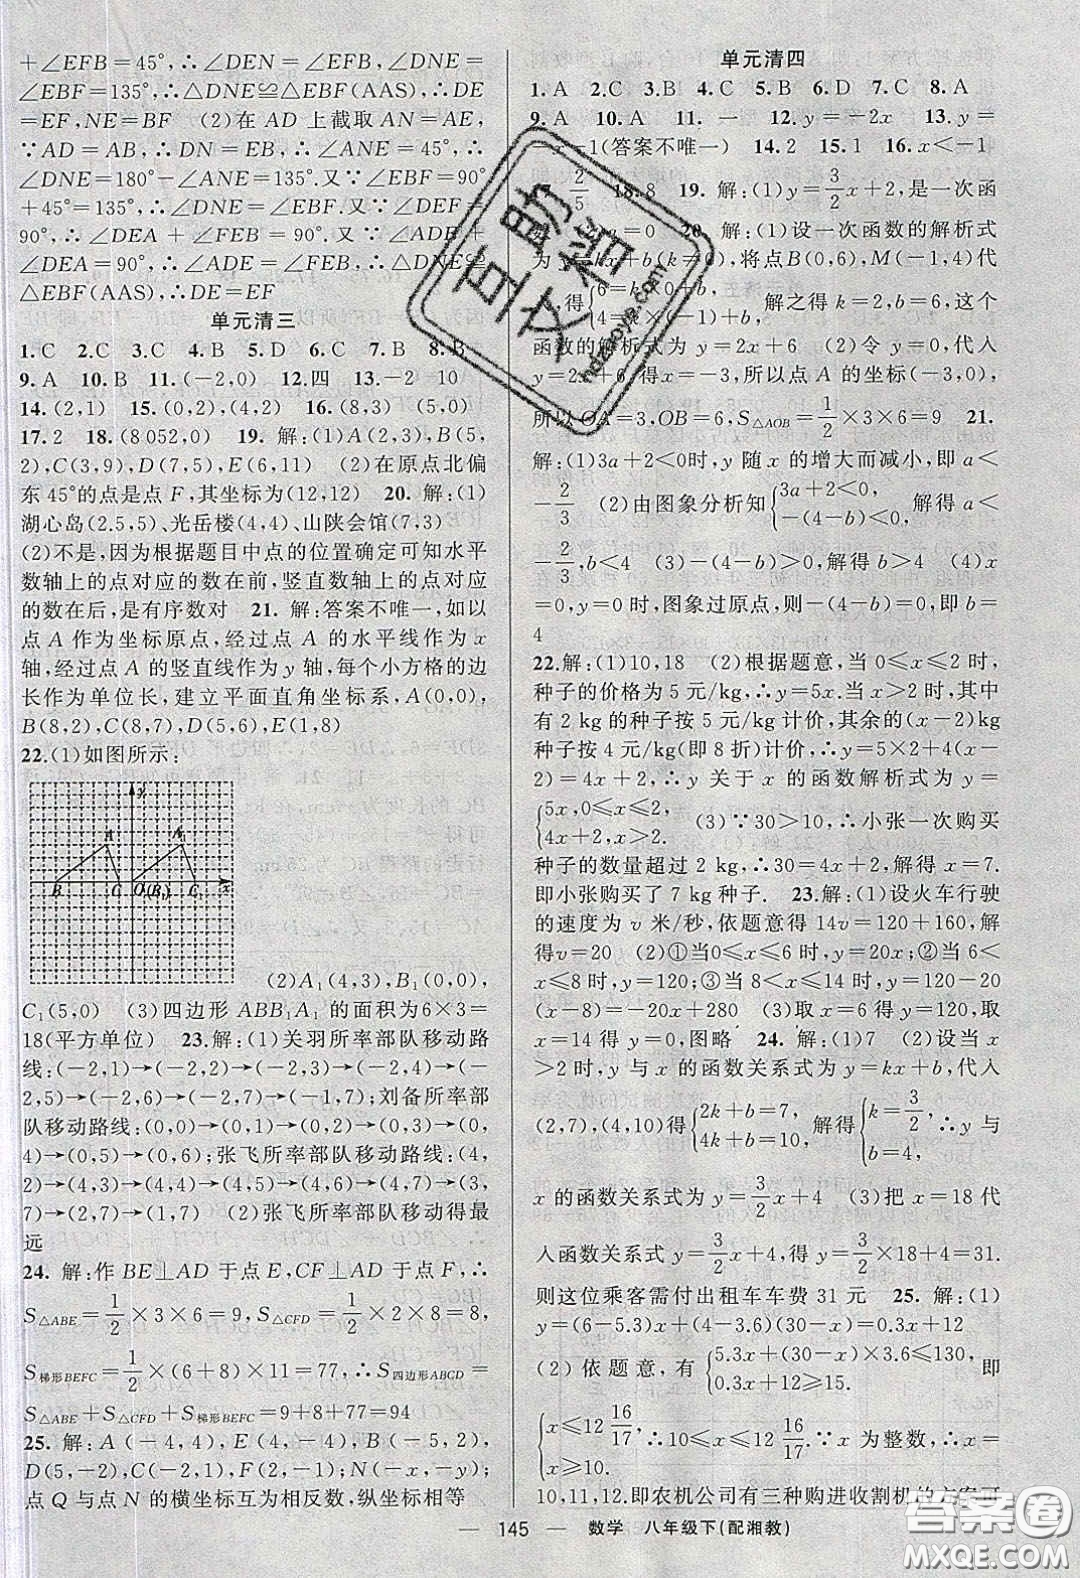 +∠EFB=45°,∴∠DEN=∠DNE=45°,∴∠DNE=
∠EBF=135°,∴△DNE≌△EBF(AAS),∴DE
=EF,NE=BF (2)在 AD 上截取 AN=AE,
∵AD=AB,∴DN=EB,∴∠ANE=45°,∴
∠DNE=180°-∠ANE=135°.又∵∠EBF=90°
+45°=135°,∴∠DNE=∠EBF.又∵∠DEF=
90°,∴∠DEA+∠FEB=90°.又∵∠ADE+
∠DEA=90°,∴∠ADE=∠FEB,∴△DNE≌
△EBF(AAS),∴DE=EF
单元清三
1.C 2.C 3.C 4.B 5.D 6.C 7.B 8.B
9.A 10.B 11.(-2,0) 12.四 13.-2 10
14.(2,1) 15.(0,2),(4,2) 16.(8,3) (5,0)
17.2 18.(8 052,0) 19. 解:(1)A(2,3),B(5,
2),C(3,9),D(7,5),E(6,11) (2)在原点北偏
东45°的点是点 F,其坐标为(12,12) 20. 解:(1)
湖心岛(2.5,5)、光岳楼(4,4)、山陕会馆(7,3)
(2)不是,因为根据题目中点的位置确定可知水平
数轴上的点对应的数在前,竖直数轴上的点对应
的数在后,是有序数对 21. 解:答案不唯一,如以
点 A 作为坐标原点,经过点 A 的水平线作为 x
轴,经过点 A 的竖直线作为 y 轴,每个小方格的边
长作为单位长,建立平面直角坐标系,A(0,0),
B(8,2),C(8,7),D(5,6),E(1,8)
22.(1)如图所示:
y
A A₁
B C O(B₁) C₁ x
(2)A₁(4,3),B₁(0,0),
C₁(5,0) (3)四边形 ABB₁A₁ 的面积为6×3=
18(平方单位) 23.解:(1)关羽所率部队移动路
线:(-2,1)→(-2,2)→(-2,3)→(-2,4)→(-
2,5)→(-2,6)→(-2,7)→(-1,7);刘备所率部
队移动路线:(0,0)→(0,1)→(0,2)→(0,3)→(0,
4)→(0,5)→(0,6);张飞所率部队移动路线:(4,
2)→(4,3)→(4,4)→(4,5)→(4,6)→(4,7)→(3,
7)→(2,7)→(1,7) (2)张飞所率部队移动得最
远
24. 解:作 BE⊥AD 于点 E,CF⊥AD 于点 F,∴
S△ABE=1/2×3×6=9,S△CFD=1/2×2×8=8,
S梯形BEFC=1/2×(6+8)×11=77,∴S四边形ABCD=
S△ABE+S△CFD+S梯形BEFC=9+8+77=94
25. 解:A(-4,4),E(4,-4),B(-5,2),
D(5,-2),C(-2,1),F(2,-1);N(-x,-y);
点 Q 与点 N 的横坐标互为相反数,纵坐标相等
单元清四
1.A 2.C 3.B 4.C 5.B 6.D 7.C 8.A
9.A 10.A 11. 一 12.y=-2x 13.y=
-x-1(答案不唯一) 14.2 15.1 16.x<-1
2/5 18.8 19. 解:(1)y=3/2x+2,是一次函
=0 20. 解:(1)设一次函数的解析式
为 y=kx+b(k≠0),将点B(0,6),M(-1,4)代
得{6=b, 4=-k+b, 解之得 k=2,b=6,这个
函数的解析式为 y=2x+6 (2)令 y=0,代入
y=2x+6,得x=-3,所以点 A 的坐标(-3,0),
所以OA=3,OB=6,S△AOB=1/2×3×6=9 21.
解:(1)3a+2<0时,y 随 x 的增大而减小,即 a<
-2/3 (2)由图象分析知{3a+2<0, -(4-b)<0, 解得 a<
-2/3,b<4 (3)-(4-b)>0,解得 b>4 (4)x
=0时,y=-(4-b),图象过原点,则-(4-b)=0,b=
4
22.解:(1)10,18 (2)根据题意,当 0≤x≤2 时,
种子的价格为 5 元/kg,∴y=5x.当 x>2 时,其中
有 2 kg 的种子按 5 元/kg 计价,其余的(x-2)kg
种子按 4 元/kg(即 8 折)计价,∴y=5×2+4(x
-2)=4x+2,∴y 关于 x 的函数解析式为 y=
{5x,0≤x≤2, 4x+2,x>2. (3)∵30>10,∴小张一次购买
种子的数量超过 2 kg,∴30=4x+2,解得 x=7.
即小张购买了 7 kg 种子. 23.解:(1)设火车行驶
的速度为 v 米/秒,依题意得 14v=120+160,解
得v=20 (2)①当0≤x≤6 时,y=20x;②当 6<
x≤8 时,y=120;③当 8<x≤14 时,y=120-20
(x-8)=-20x+280 (3)取 x=6 得 y=120,取
x=14 得 y=0,图略 24. 解:(1)7 (2)设当 x
>2 时,y 与 x 的函数关系式为 y=kx+b,代入
(2,7),(4,10)得{2k+b=7, 4k+b=10, 解得{k=3/2, b=4, ∴y 与
x 的函数关系式为 y=3/2x+4 (3)把 x=18 代
入函数关系式 y=3/2x+4,得 y=3/2×18+4=31.
则这位乘客需付出租车车费 31 元 25. 解:(1)
y=(6-5.3)x+(4-3.6)(30-x)=0.3x+12
(2)依题意,有{5.3x+(30-x)×3.6≤130, 0.3x+12≥15. 即
{x≤12 16/17, x≥10. ∴10≤x≤12 16/17.∵x 为整数,∴x=
10,11,12.即农机公司有三种购进收割机的方案可
— 145 — 数学 八年级下(配湘教)
hdzuoye.com
答案圈
MXQE.COM